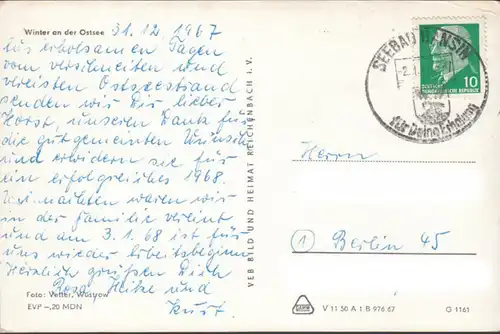 Winter an der Ostsee
31.12.1967
Aus erholsamen Tagen
vom verschneiten und
vereisten Ostseestrand
senden wir Dir, lieber
Horst, unseren Dank für
die gut gemeinten Wünsche
und erwidern sie für
ein erfolgreiches 1968.
Weihnachten waren wir
in der Familie vereint
und am 3.1.68 ist für
uns wieder Arbeitsbeginn
Herzlich grüßen Dich
Rosa, Heike und
Kurt.
Foto: Vetter, Wustrow
EVP -,20 MDN
VEB BILD UND HEIMAT REICHENBACH i. V.
SEEBAD BANSIN
2.1.
für Deine Erholung
10
DEUTSCHE DEMOKRATISCHE REPUBLIK
Herrn
1 Berlin 45
V 11 50 A 1 B 976 67
G 1161